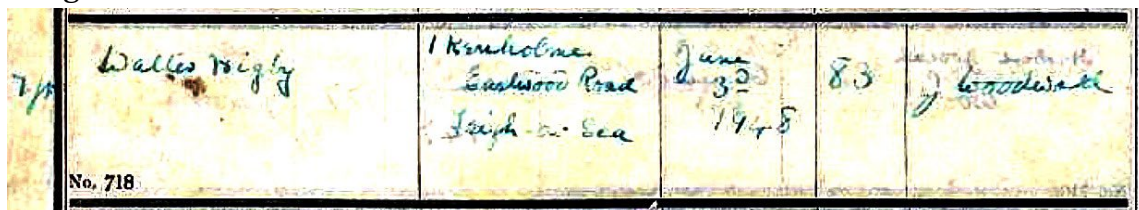 Walter Rigby
1 Kenholme
Eastwood Road
Leigh-o-Sea
June
3rd
1948
83
J Woodward
No. 718